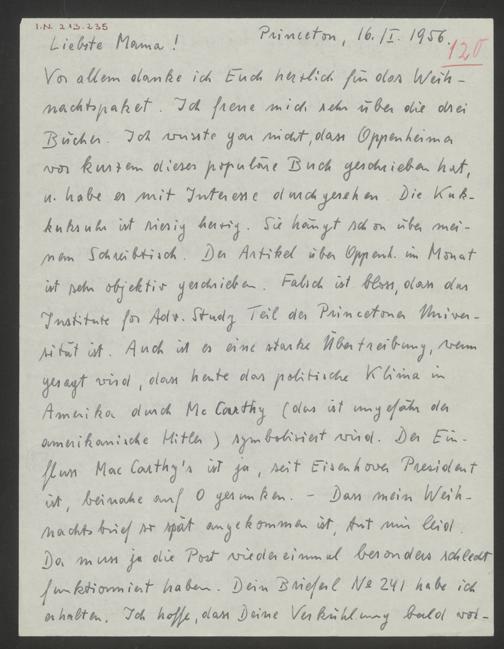 I.N. 213.235
Princeton, 16./I. 1956.
120
Liebste Mama!
Vor allem danke ich Euch herzlich für das Weih-
nachtspaket. Ich freue mich sehr über die drei
Bücher. Ich wusste gar nicht, dass Oppenheimer
vor kurzem dieses populäre Buch geschrieben hat,
u. habe es mit Interesse durchgesehen. Die Kuk-
kuksuhr ist riesig herzig. Sie hängt schon über mei-
nem Schreibtisch. Der Artikel über Oppenh. im Monat
ist sehr objektiv geschrieben. Falsch ist bloss, dass das
Institute for Adv. Study Teil der Princetoner Univer-
sität ist. Auch ist es eine starke Übertreibung, wenn
gesagt wird, dass heute das politische Klima in
Amerika durch Mc Carthy (das ist ungefähr der
amerikanische Hitler) symbolisiert wird. Der Ein-
fluss Mac Carthy's ist ja, seit Eisenhower President
ist, beinahe auf 0 gesunken. – Dass mein Weih-
nachtsbrief so spät angekommen ist, tut mir leid.
Da muss ja die Post wiedereinmal besonders schlecht
funktionniert haben. Dein Brieferl № 241 habe ich
erhalten. Ich hoffe, dass Deine Verkühlung bald vor-